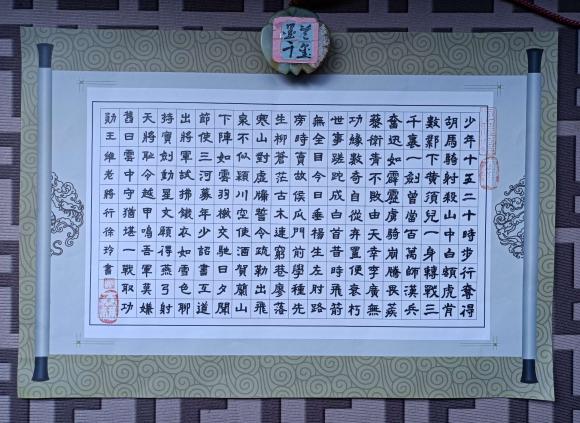 少年十五二十時步行奪得
胡馬騎射殺山中白額虎肯
數鄴下黃須兒一身轉戰三
千裏一劍曾當百萬師漢兵
奮迅如霹靂虜騎崩騰畏蒺
藜衛青不敗由天幸李廣無
功緣數奇自從棄置便衰朽
世事蹉跎成白首昔時飛箭
無全目今日垂楊生左肘路
旁時賣故侯瓜門前學種先
生柳蒼茫古木連窮巷寥落
寒山對虛牖誓令疏勒出飛
泉不似潁川空使酒賀蘭山
下陣如雲羽檄交馳日夕聞
節使三河募年少詔書五道
出將軍試拂鐵衣如雪色聊
持寶劍動星文願得燕弓射
天將恥令越甲鳴吾軍莫嫌
舊日雲中守猶堪一戰取功
勛王維老將行徐玲書